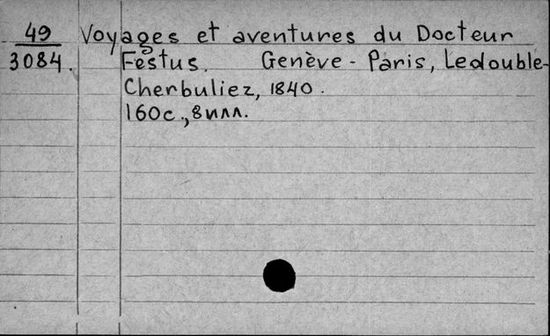 49 Voyages et aventures du Docteur
3084. Festus. Genève - Paris, Ledouble-
Cherbuliez, 1840.
160с., 8илл.